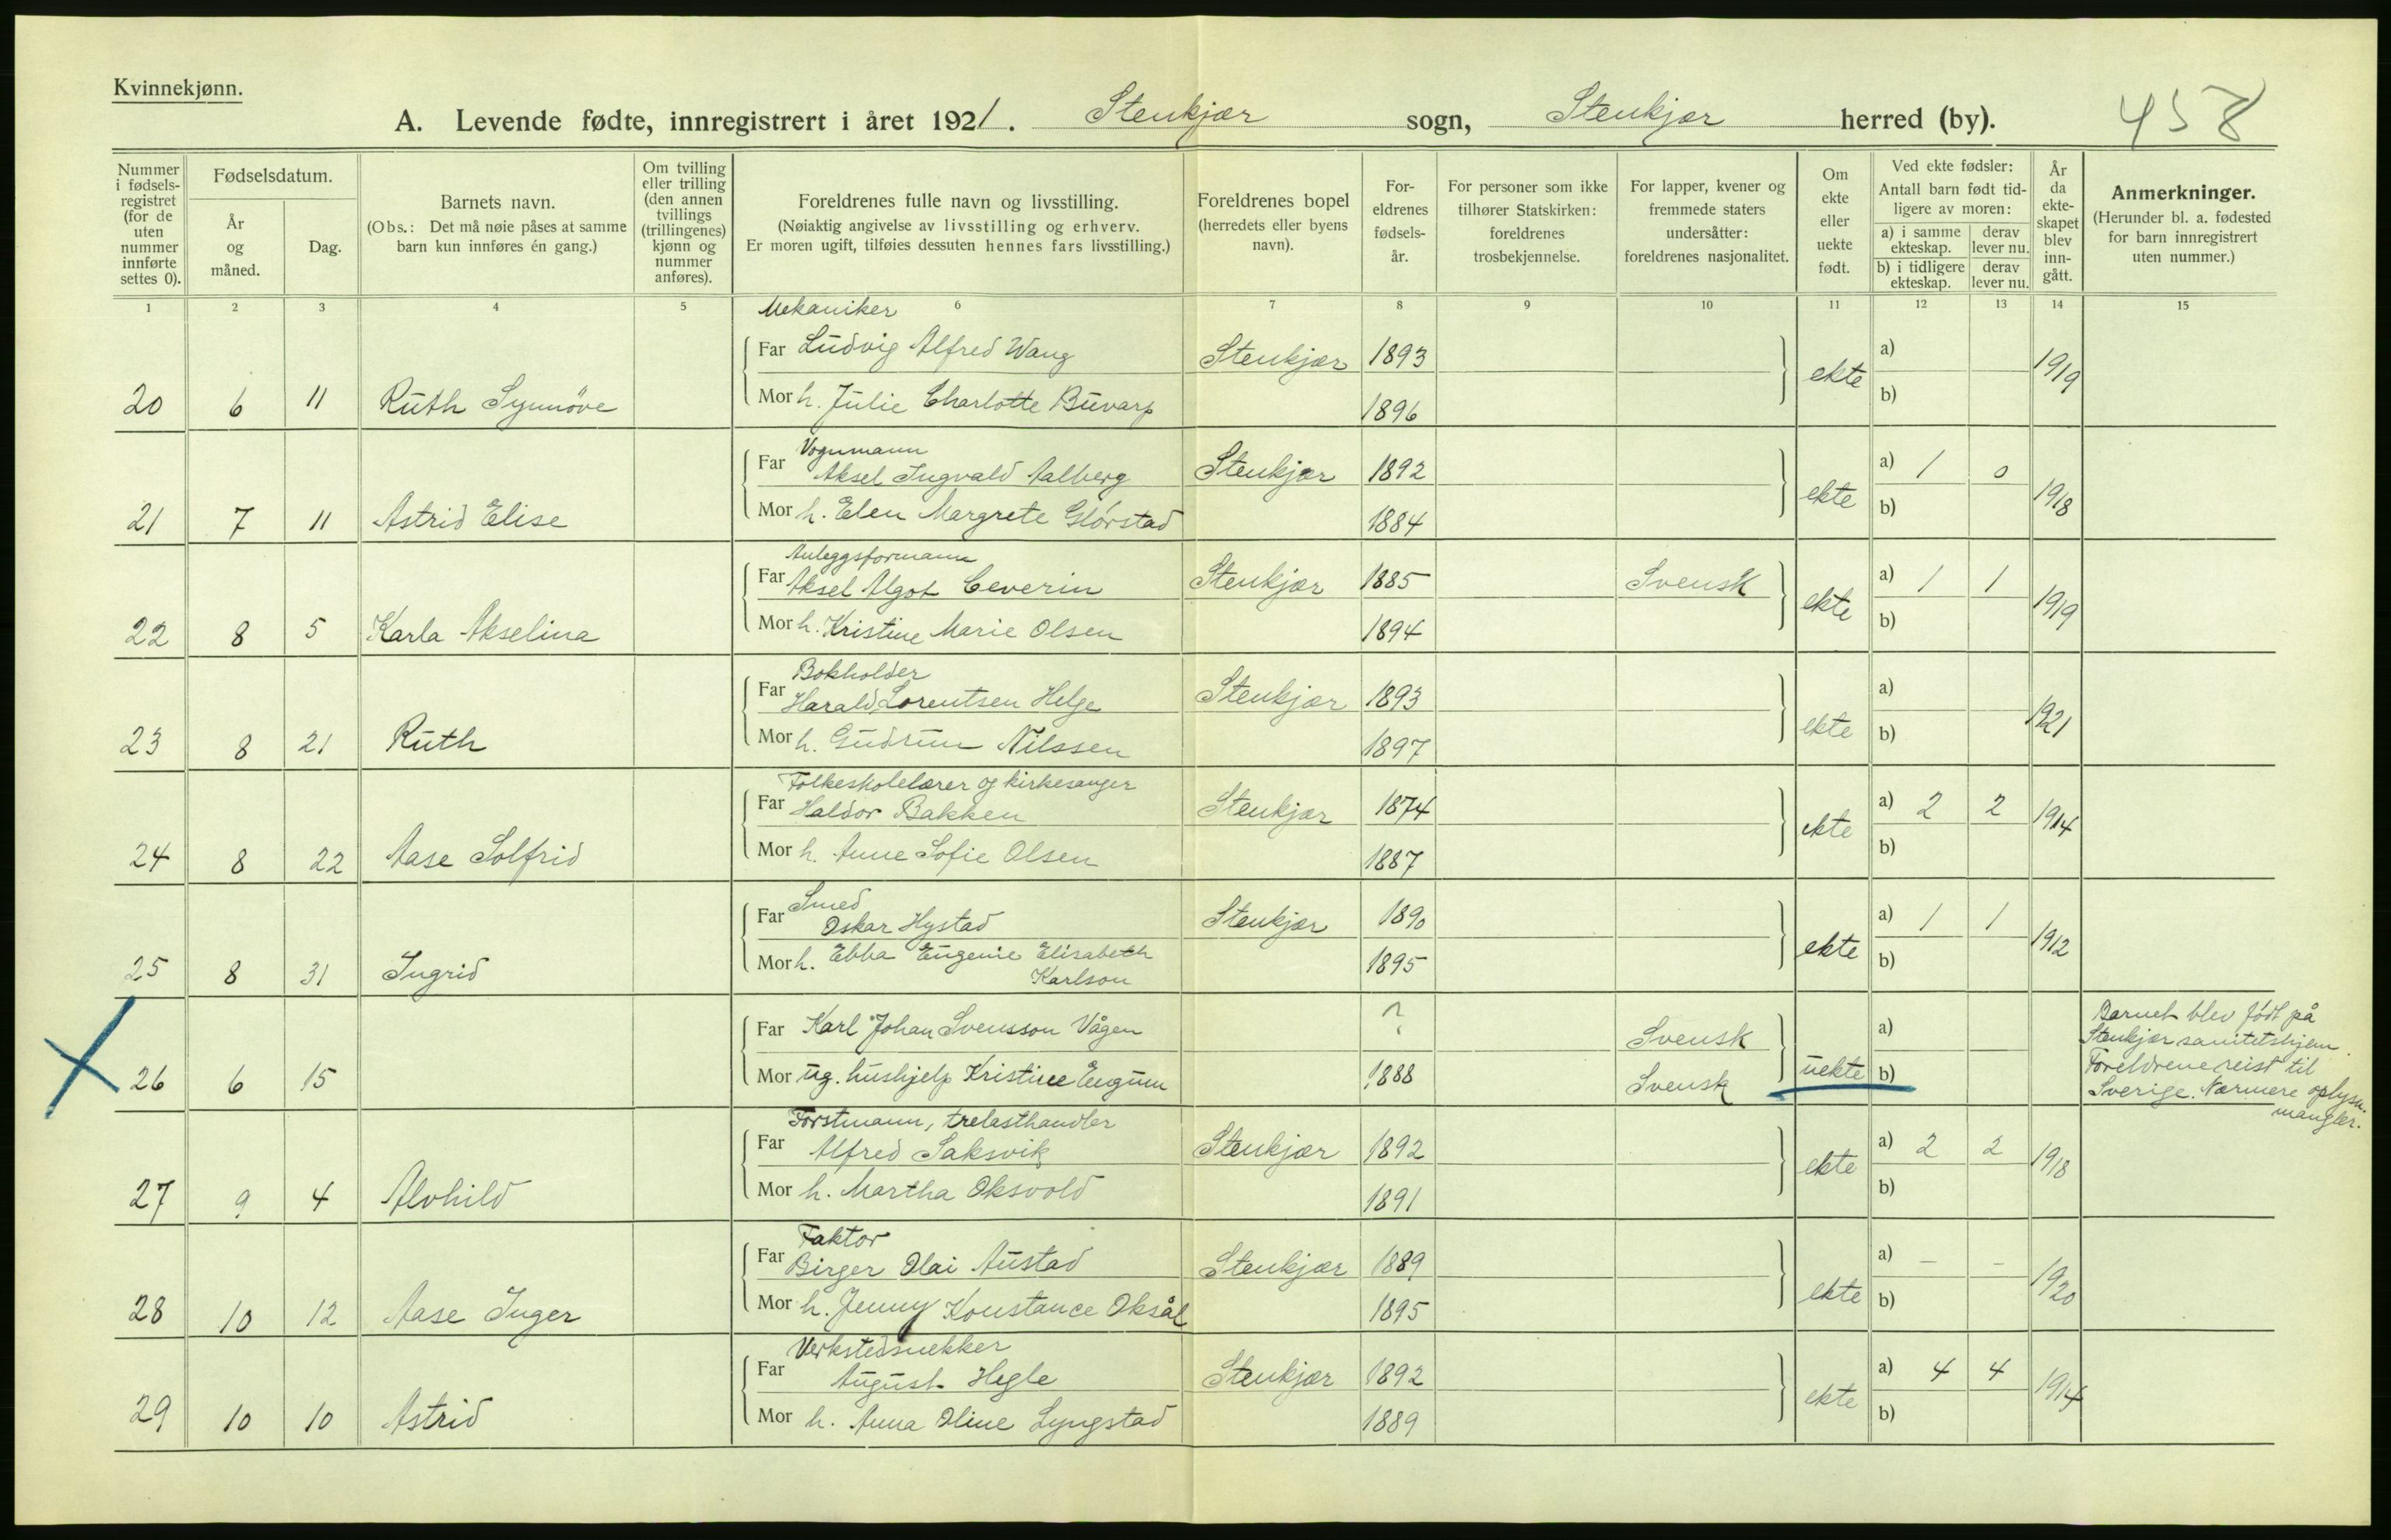 Kvinnekjønn.
A. Levende fødte, innregistrert i året 1921. Stenkjær sogn, Stenkjær herred (by). 458
Nummer i fødsels-registret (for de uten nummer innførte settes 0).
Fødselsdatum.
År og måned.
Dag.
Barnets navn.
(Obs.: Det må nøie påses at samme barn kun innføres én gang.)
Om tvilling eller trilling (den annen tvillings (trillingenes) kjønn og nummer anføres).
Foreldrenes fulle navn og livsstilling.
(Nøiaktig angivelse av livsstilling og erhverv. Er moren ugift, tilføies dessuten hennes fars livsstilling.)
Foreldrenes bopel (herredets eller byens navn).
For-eldrenes fødsels-år.
For personer som ikke tilhører Statskirken: foreldrenes trosbekjennelse.
For lapper, kvener og fremmede staters undersåtter: foreldrenes nasjonalitet.
Om ekte eller uekte født.
Ved ekte fødsler: Antall barn født tid-ligere av moren:
a) i samme ekteskap. derav lever nu.
b) i tidligere ekteskap. derav lever nu.
År da ekte-skapet blev inn-gått.
Anmerkninger.
(Herunder bl. a. fødested for barn innregistrert uten nummer.)
1 2 3 4 5 6 7 8 9 10 11 12 13 14 15
Mekaniker
Far Ludvig Alfred Wang Stenkjær 1893 a) 1919
20 6 11 Ruth Synnöve Mor h. Julie Charlotte Buvarp 1896 ekte b)
Vognmann
Far Aksel Ingvald Aalberg Stenkjær 1892 a) 1 0 1918
21 7 11 Astrid Elise Mor h. Elen Margrete Glørstad 1884 ekte b)
Anleggsformann
Far Aksel Algot Ceverin Stenkjær 1885 Svensk a) 1 1 1919
22 8 5 Karla Akselina Mor h. Kristine Marie Olsen 1894 ekte b)
Bokholder
Far Harald Lorentsen Helge Stenkjær 1893 a) 1921
23 8 21 Ruth Mor h. Gudrun Nilssen 1897 ekte b)
Folkeskolelærer og kirkesanger
Far Haldor Bakken Stenkjær 1874 a) 2 2 1914
24 8 22 Aase Solfrid Mor h. Anne Sofie Olsen 1887 ekte b)
Smed
Far Oskar Hystad Stenkjær 1890 a) 1 1 1912
25 8 31 Ingrid Mor h. Ebba Eugenie Elisabeth Karlson 1895 ekte b)
Far Karl Johan Svensson Vågen ? Svensk a)
26 6 15 Mor ug. hushjelp Kristine Engum 1888 Svensk uekte b)
Barnet blev født på
Stenkjær sanitetshjem.
Foreldrene reist til
Sverige. Nærmere oplysn.
mangler.
Forstmann, trelasthandler
Far Alfred Saksvik Stenkjær 1892 a) 2 2 1918
27 9 4 Alvhild Mor h. Martha Oksvold 1891 ekte b)
Faktor
Far Birger Olai Austad Stenkjær 1889 a) – – 1920
28 10 12 Aase Inger Mor h. Jenny Konstance Oksål 1895 ekte b)
Verkstedsnekker
Far August Hegle Stenkjær 1892 a) 4 4 1914
29 10 10 Astrid Mor h. Anna Oline Lyngstad 1889 ekte b)